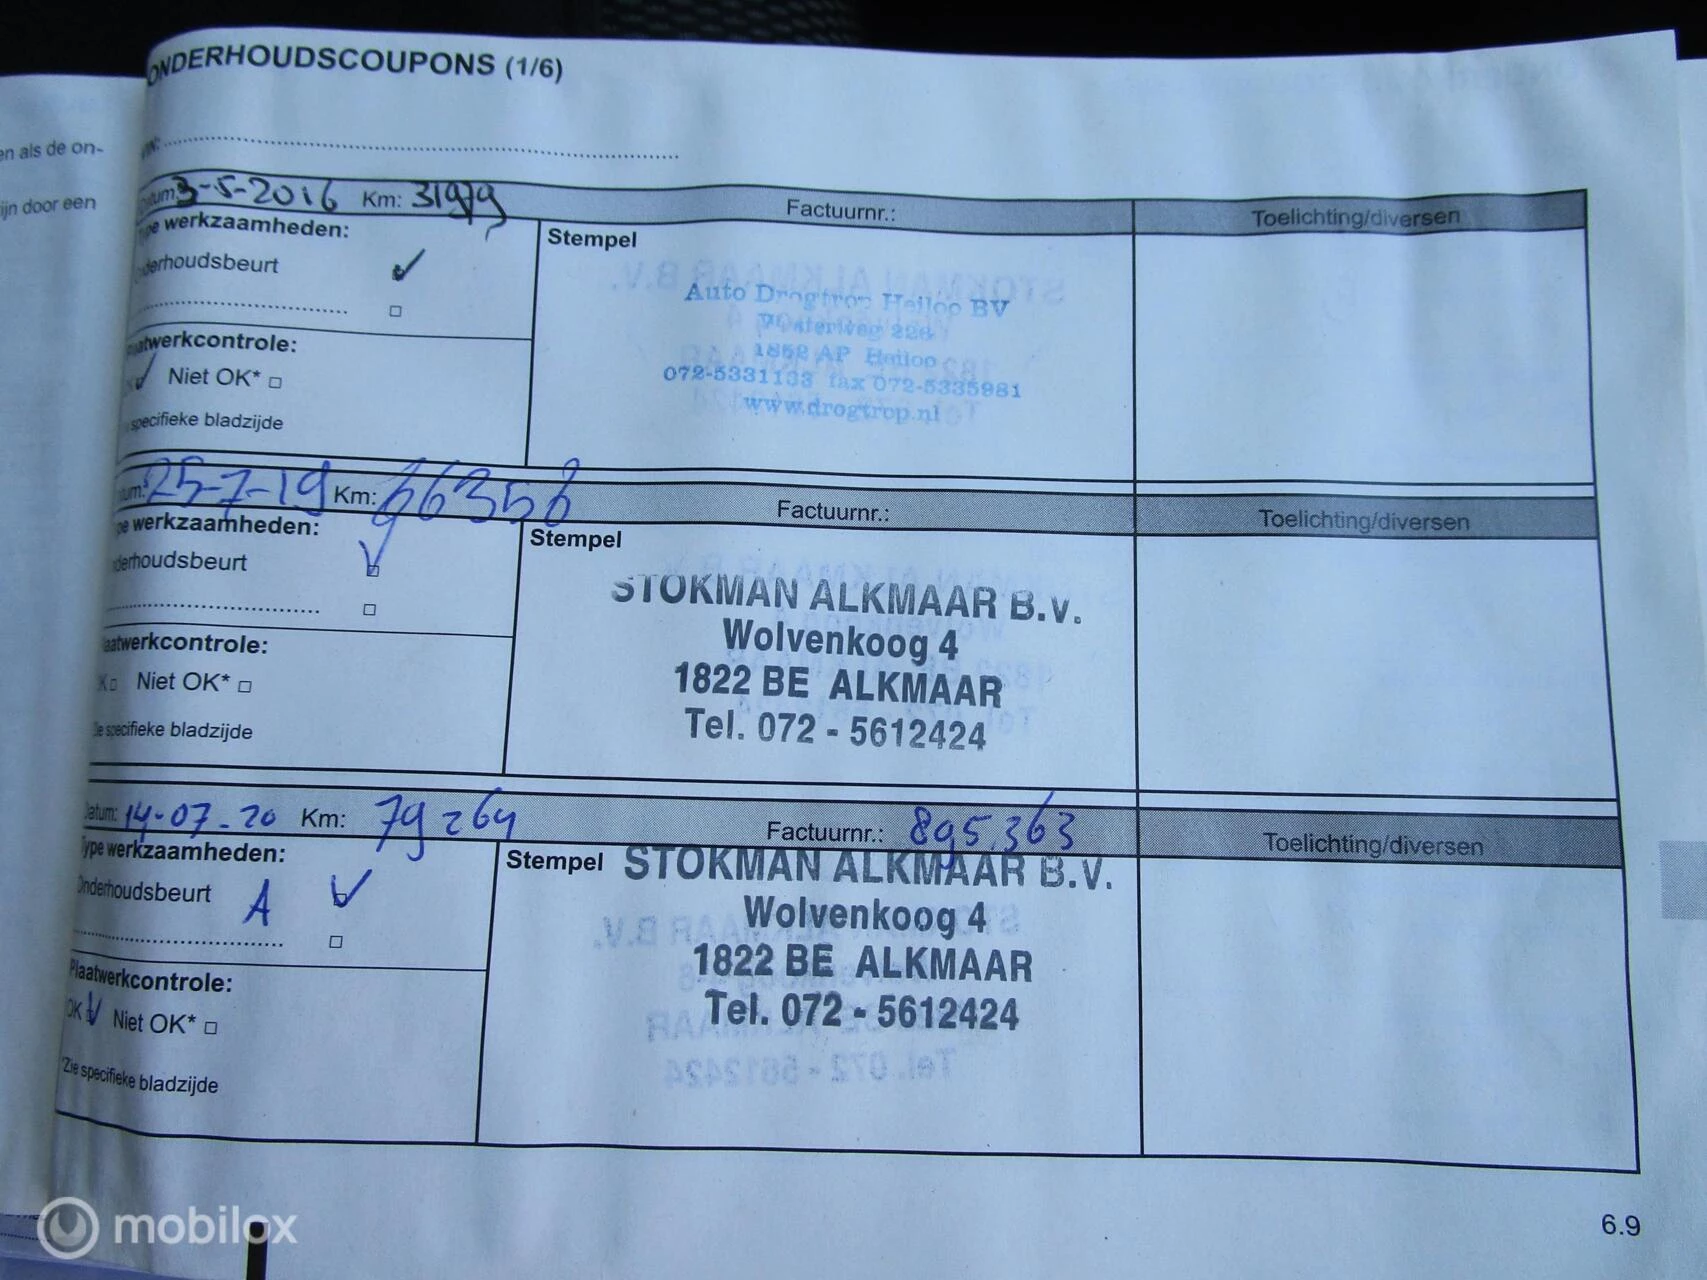 ONDERHOUDSCOUPONS (1/6)
en als de on-
ijn door een
VIN:
Datum: 3-5-2016 Km: 31979 Factuurnr.: Toelichting/diversen
Type werkzaamheden:
Onderhoudsbeurt
Stempel
Auto Drogtrop Heiloo BV
Westerweg 226
1852 AP Heiloo
072-5331133 fax 072-5335981
www.drogtrop.nl
Plaatwerkcontrole:
OK Niet OK*
specifieke bladzijde
Datum: 25-7-19 Km: 66356 Factuurnr.: Toelichting/diversen
Type werkzaamheden:
Onderhoudsbeurt
Stempel
STOKMAN ALKMAAR B.V.
Wolvenkoog 4
1822 BE ALKMAAR
Tel. 072 - 5612424
Plaatwerkcontrole:
OK Niet OK*
Zie specifieke bladzijde
Datum: 14-07-20 Km: 79264 Factuurnr.: 895.363 Toelichting/diversen
Type werkzaamheden:
Onderhoudsbeurt A
Stempel
STOKMAN ALKMAAR B.V.
Wolvenkoog 4
1822 BE ALKMAAR
Tel. 072 - 5612424
Plaatwerkcontrole:
OK Niet OK*
*Zie specifieke bladzijde
6.9
mobilox